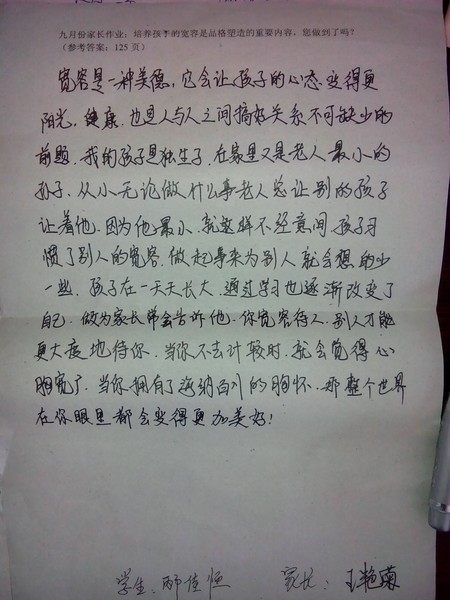 九月份家长作业：培养孩子的宽容是品格塑造的重要内容，您做到了吗？
（参考答案：125页）
宽容是一种美德，它会让孩子的心态变得更
阳光，健康，也是人与人之间搞好关系不可缺少的
前题，我的孩子是独生子，在家里又是老人最小的
孙子，从小无论做什么事老人总让别的孩子
让着他，因为他最小，就这样不经意间，孩子习
惯了别人的宽容，做起事来为别人就会想的少
一些，孩子在一天天长大，通过学习也逐渐改变了
自己，做为家长常会告诉他，你宽容待人，别人才能
更大度地待你，当你不去计较时，就会觉得心
胸宽广，当你拥有了海纳百川的胸怀，那整个世界
在你眼里都会变得更加美好！
学生：邴佳恒 家长：王艳菊